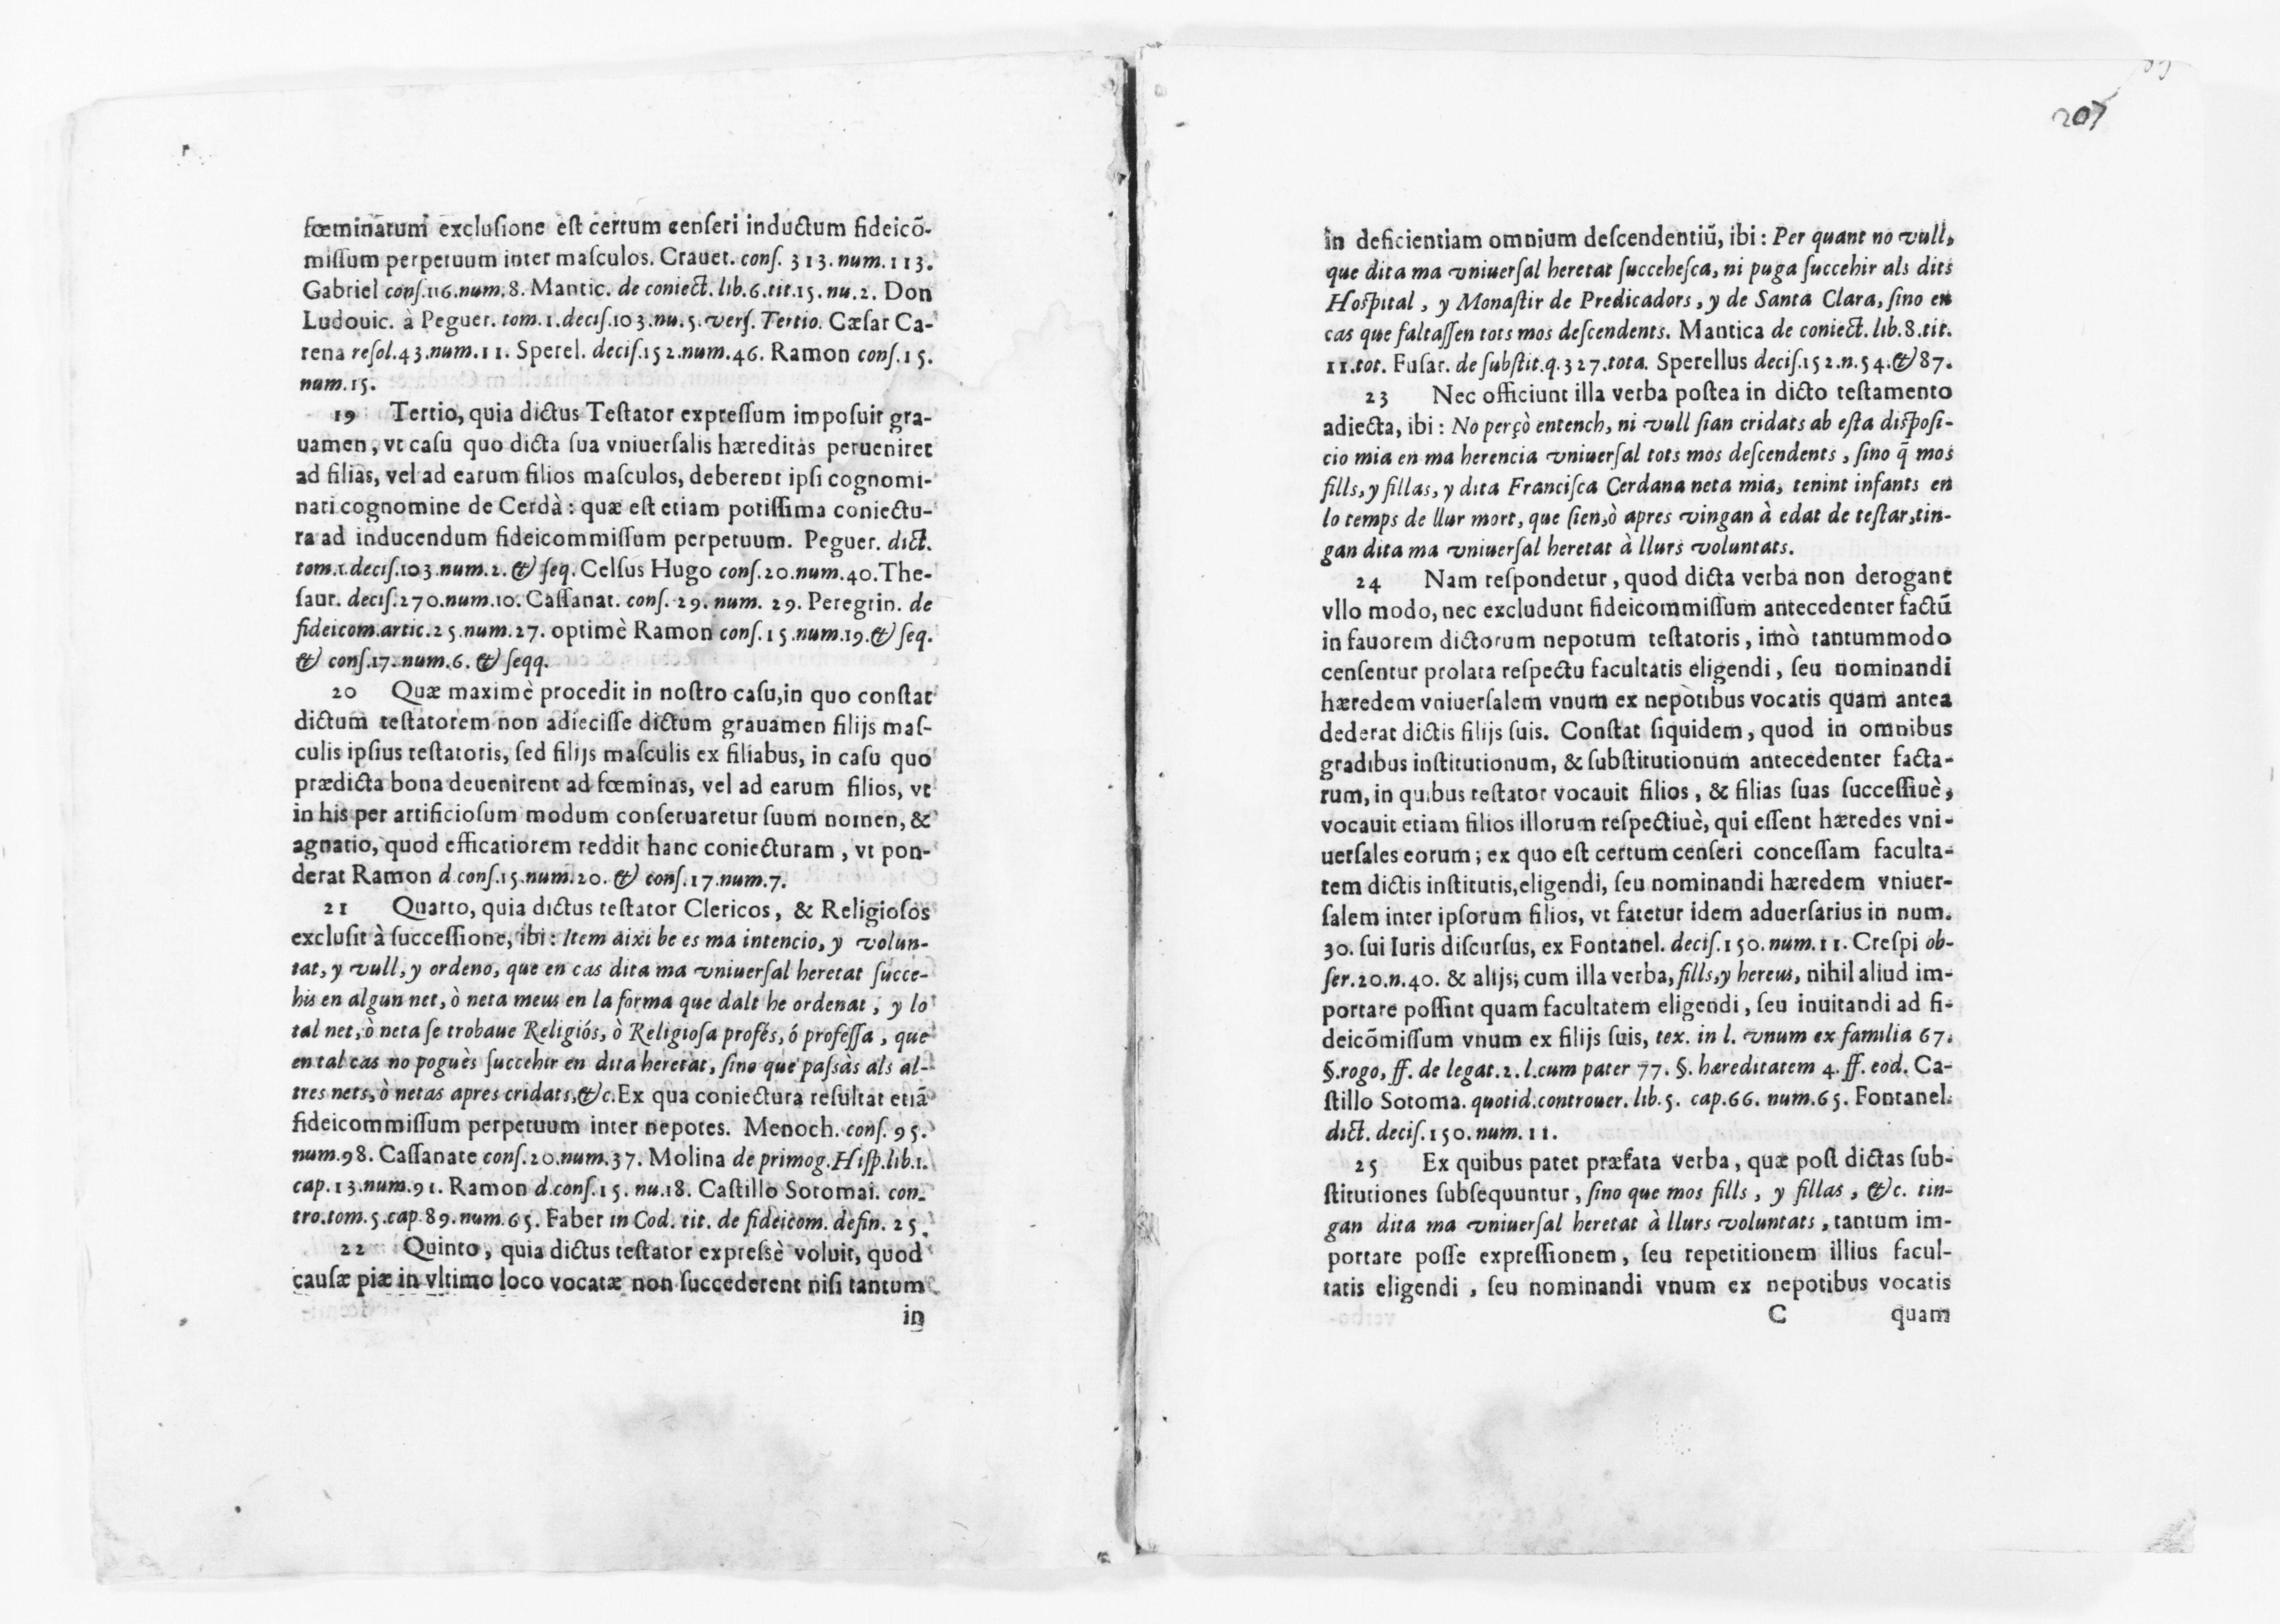 fœminarum exclusione est certum censeri inductum fideicõ-
missum perpetuum inter masculos. Crauet. cons. 313. num. 113.
Gabriel cons.116.num.8. Mantic. de coniect. lib.6.tit.15. nu.2. Don
Ludouic. à Peguer. tom.1.decis.103.nu.5.vers. Tertio. Cæsar Ca-
rena resol.43.num.11. Sperel. decis.152.num.46. Ramon cons.15.
num.15.
19 Tertio, quia dictus Testator expressum imposuit gra-
uamen, vt casu quo dicta sua vniuersalis hæreditas perueniret
ad filias, vel ad earum filios masculos, deberent ipsi cognomi-
nari cognomine de Cerdà: quæ est etiam potissima coniectu-
ra ad inducendum fideicommissum perpetuum. Peguer. dict.
tom.1.decis.103.num.2. & seq. Celsus Hugo cons.20.num.40.The-
saur. decis.270.num.10. Cassanat. cons. 29. num. 29. Peregrin. de
fideicom.artic.25.num.27. optimè Ramon cons.15.num.19.& seq.
& cons.17.num.6. & seqq.
20 Quæ maximè procedit in nostro casu,in quo constat
dictum testatorem non adiecisse dictum grauamen filijs mas-
culis ipsius testatoris, sed filijs masculis ex filiabus, in casu quo
prædicta bona deuenirent ad fœminas, vel ad earum filios, vt
in his per artificiosum modum conseruaretur suum nomen, &
agnatio, quod efficatiorem reddit hanc coniecturam, vt pon-
derat Ramon d cons.15.num.20. & cons.17.num.7.
21 Quarto, quia dictus testator Clericos, & Religiosos
exclusit à successione, ibi: Item aixi be es ma intencio, y volun-
tat, y vull, y ordeno, que en cas dita ma vniuersal heretat succe-
his en algun net, ò neta meus en la forma que dalt he ordenat, y lo
tal net, ò neta se trobaue Religiós, ò Religiosa profés, ó professa, que
en tal cas no poguès succehir en dita heretat, sino que passàs als al-
tres nets, ò netas apres cridats,&c.Ex qua coniectura resultat etiã
fideicommissum perpetuum inter nepotes. Menoch. cons. 95.
num.98. Cassanate cons.20.num.37. Molina de primog.Hisp.lib.1.
cap.13.num.91. Ramon d.cons.15. nu.18. Castillo Sotomai. con-
tro.tom.5.cap.89.num.65. Faber in Cod. tit. de fideicom. defin. 25.
22 Quinto, quia dictus testator expressè voluit, quod
causæ piæ in vltimo loco vocatæ non succederent nisi tantum
in
207
in deficientiam omnium descendentiũ, ibi: Per quant no vull,
que dita ma vniuersal heretat succehesca, ni puga succehir als dits
Hospital, y Monastir de Predicadors, y de Santa Clara, sino en
cas que faltassen tots mos descendents. Mantica de coniect. lib.8.tit.
11.tot. Fusar. de substit.q.327.tota. Sperellus decis.152.n.54.&87.
23 Nec officiunt illa verba postea in dicto testamento
adiecta, ibi: No perçò entench, ni vull sian cridats ab esta disposi-
cio mia en ma herencia vniuersal tots mos descendents, sino q̃ mos
fills,y fillas, y dita Francisca Cerdana neta mia, tenint infants en
lo temps de llur mort, que sien,ò apres vingan à edat de testar,tin-
gan dita ma vniuersal heretat à llurs voluntats.
24 Nam respondetur, quod dicta verba non derogant
vllo modo, nec excludunt fideicommissum antecedenter factũ
in fauorem dictorum nepotum testatoris, imò tantummodo
censentur prolata respectu facultatis eligendi, seu nominandi
hæredem vniuersalem vnum ex nepotibus vocatis quam antea
dederat dictis filijs suis. Constat siquidem, quod in omnibus
gradibus institutionum, & substitutionum antecedenter facta-
rum, in quibus testator vocauit filios, & filias suas successiuè,
vocauit etiam filios illorum respectiuè, qui essent hæredes vni-
uersales eorum; ex quo est certum censeri concessam faculta-
tem dictis institutis,eligendi, seu nominandi hæredem vniuer-
salem inter ipsorum filios, vt fatetur idem aduersarius in num.
30. sui Iuris discursus, ex Fontanel. decis.150.num.11. Crespi ob-
ser.20.n.40. & alijs; cum illa verba, fills,y hereus, nihil aliud im-
portare possint quam facultatem eligendi, seu inuitandi ad fi-
deicõmissum vnum ex filijs suis, tex. in l. vnum ex familia 67.
§.rogo, ff. de legat.2. l.cum pater 77. §. hæreditatem 4. ff. eod. Ca-
stillo Sotoma. quotid.controuer. lib.5. cap.66. num.65. Fontanel.
dict. decis.150.num.11.
25 Ex quibus patet præfata verba, quæ post dictas sub-
stitutiones subsequuntur, sino que mos fills, y fillas, &c. tin-
gan dita ma vniuersal heretat à llurs voluntats, tantum im-
portare posse expressionem, seu repetitionem illius facul-
tatis eligendi, seu nominandi vnum ex nepotibus vocatis
C quam